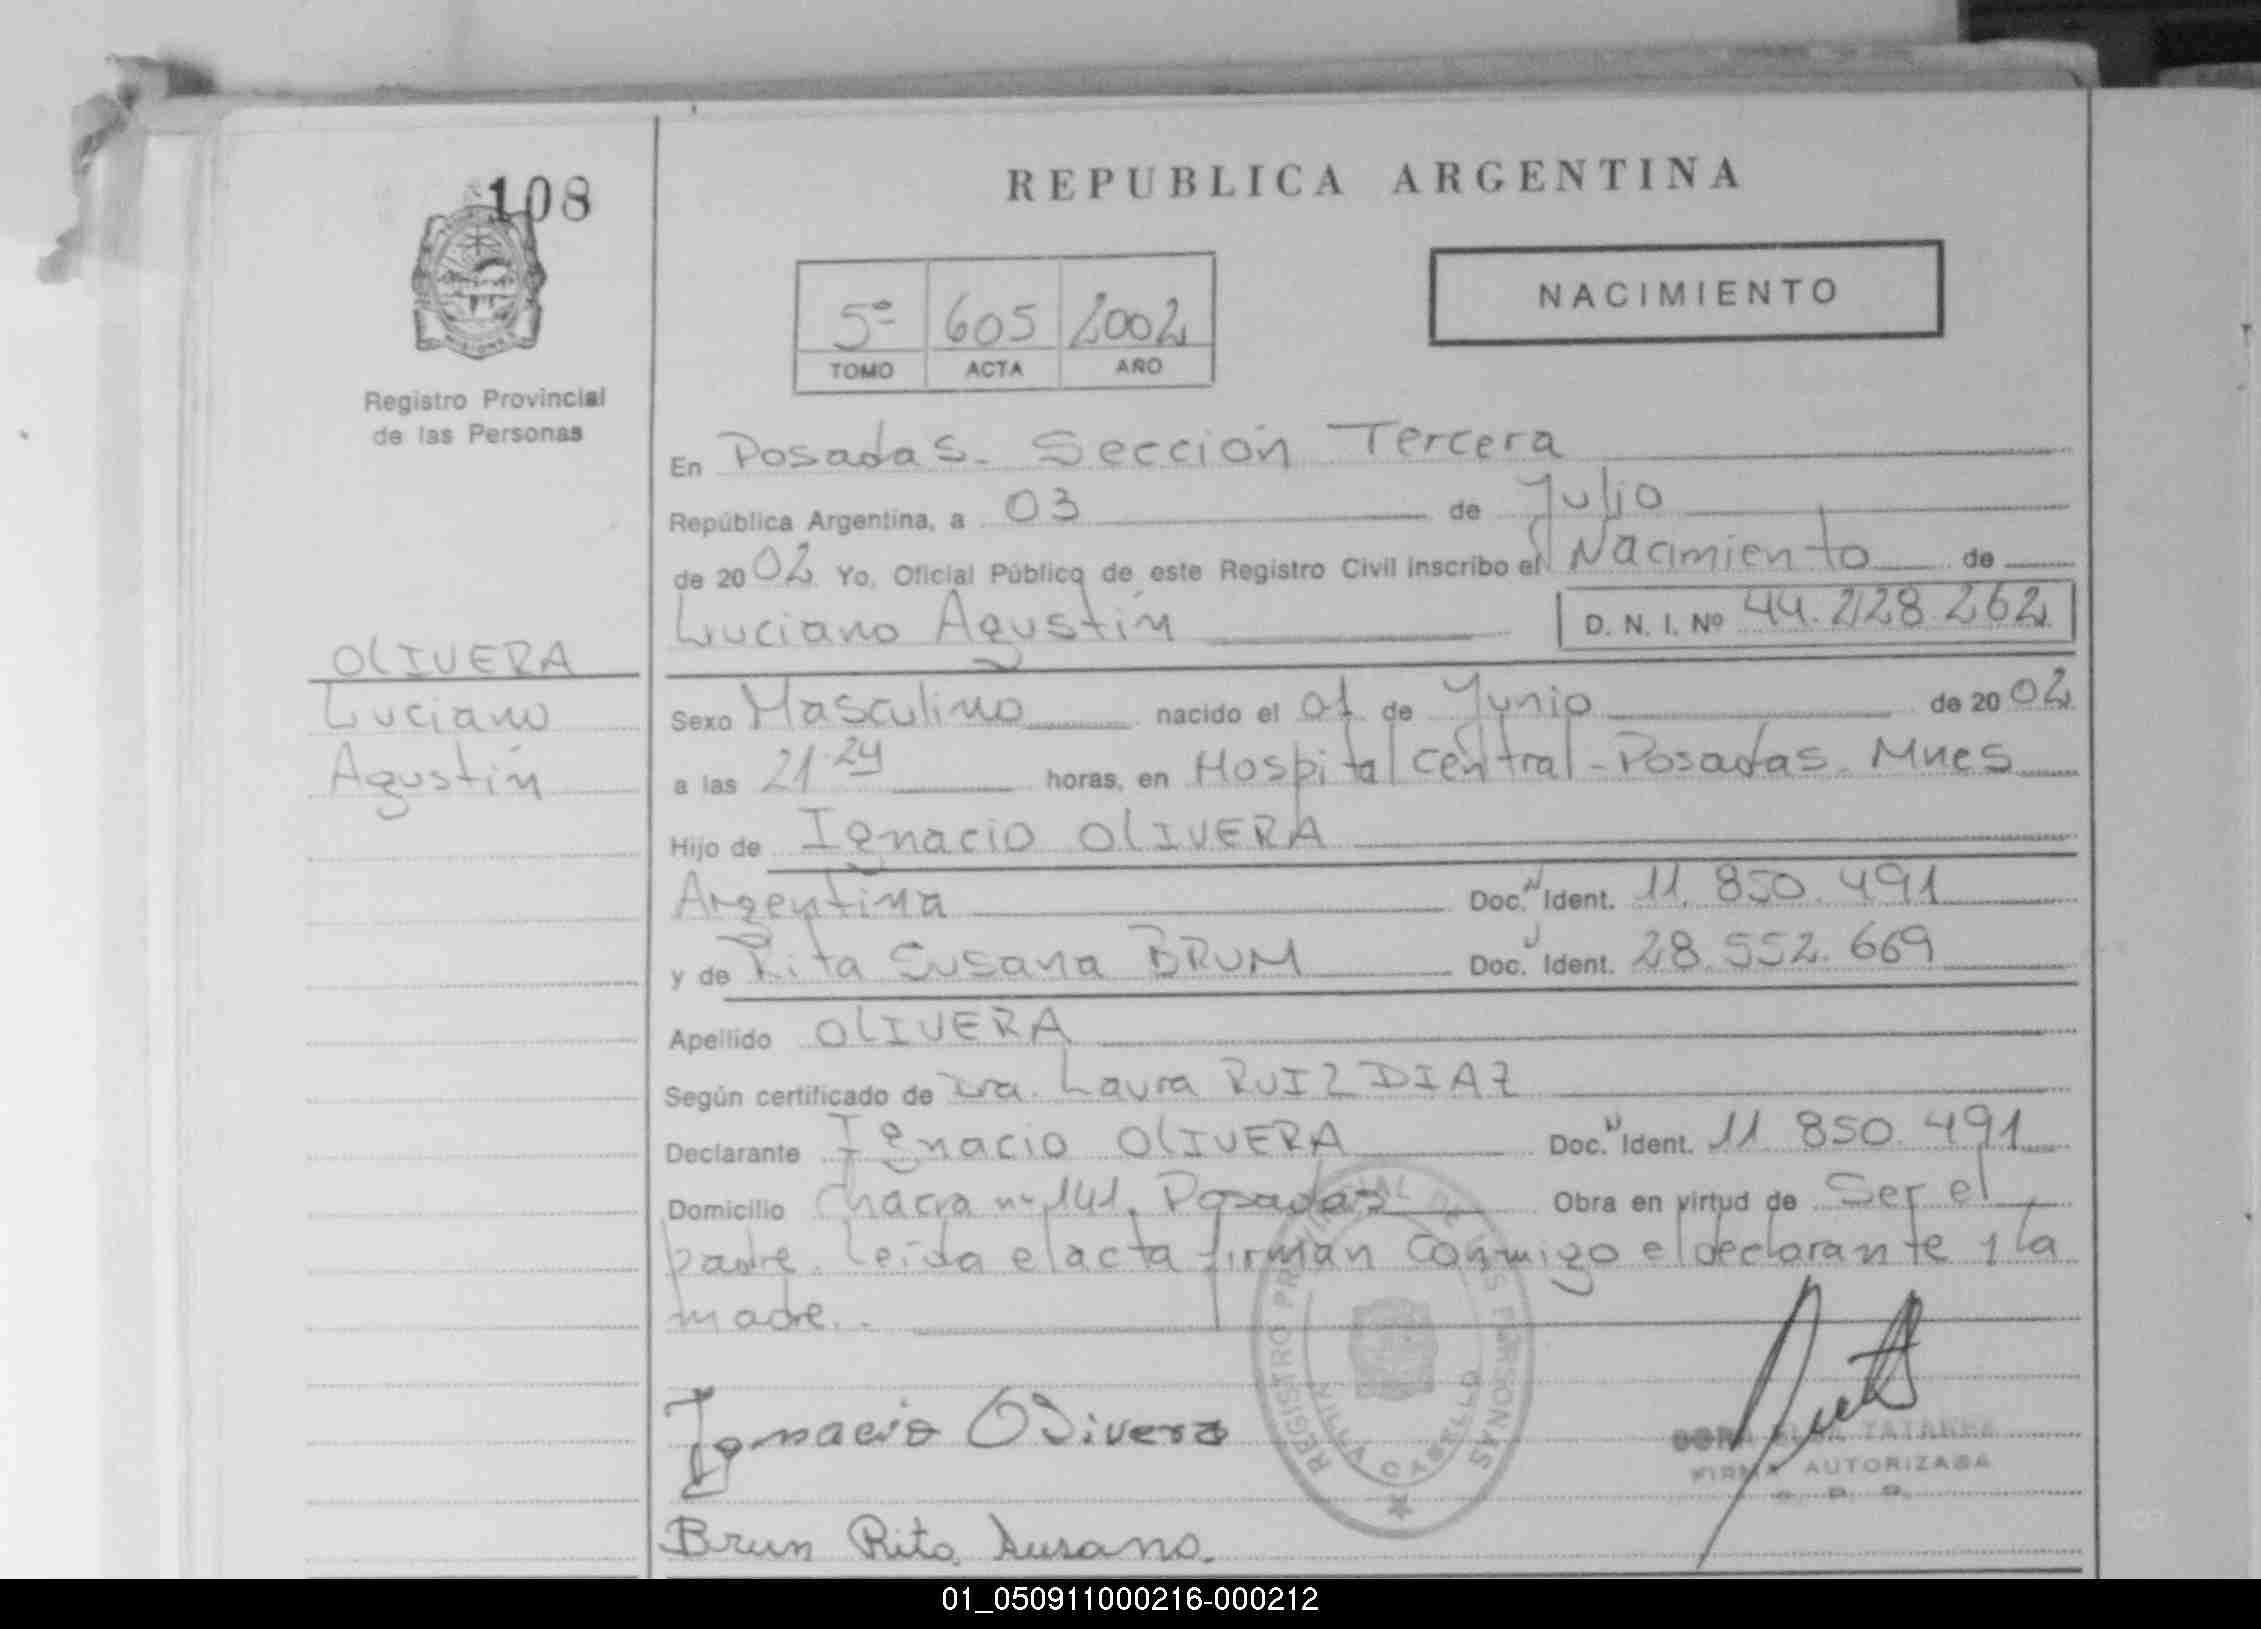 108
REPUBLICA ARGENTINA
NACIMIENTO
5º 605 2002
TOMO ACTA AÑO
Registro Provincial
de las Personas
En Posadas. Sección Tercera
República Argentina, a 03 de Julio
de 2002 Yo, Oficial Público de este Registro Civil inscribo el Nacimiento de
Luciano Agustín D. N. I. Nº 44.228.262
OLIVERA
Luciano
Agustín
Sexo Masculino nacido el 01 de Junio de 2002
a las 21.24 horas, en Hospital Central - Posadas. Mnes
Hijo de Ignacio OLIVERA
Argentina Doc. Ident. 11.850.491
y de Rita Susana BRUM Doc. Ident. 28.552.669
Apellido OLIVERA
Según certificado de Dra. Laura RUIZ DIAZ
Declarante Ignacio OLIVERA Doc. Ident. 11.850.491
Domicilio Chacra nº 141. Posadas Obra en virtud de Ser el
padre. Leida el acta firman conmigo el declarante y la
madre.
REGISTRO PROVINCIAL DE LAS PERSONAS
VILLA CABELLO
Ignacio Olivera
FIRMA AUTORIZADA
Brun Rita Susana.
01_050911000216-000212